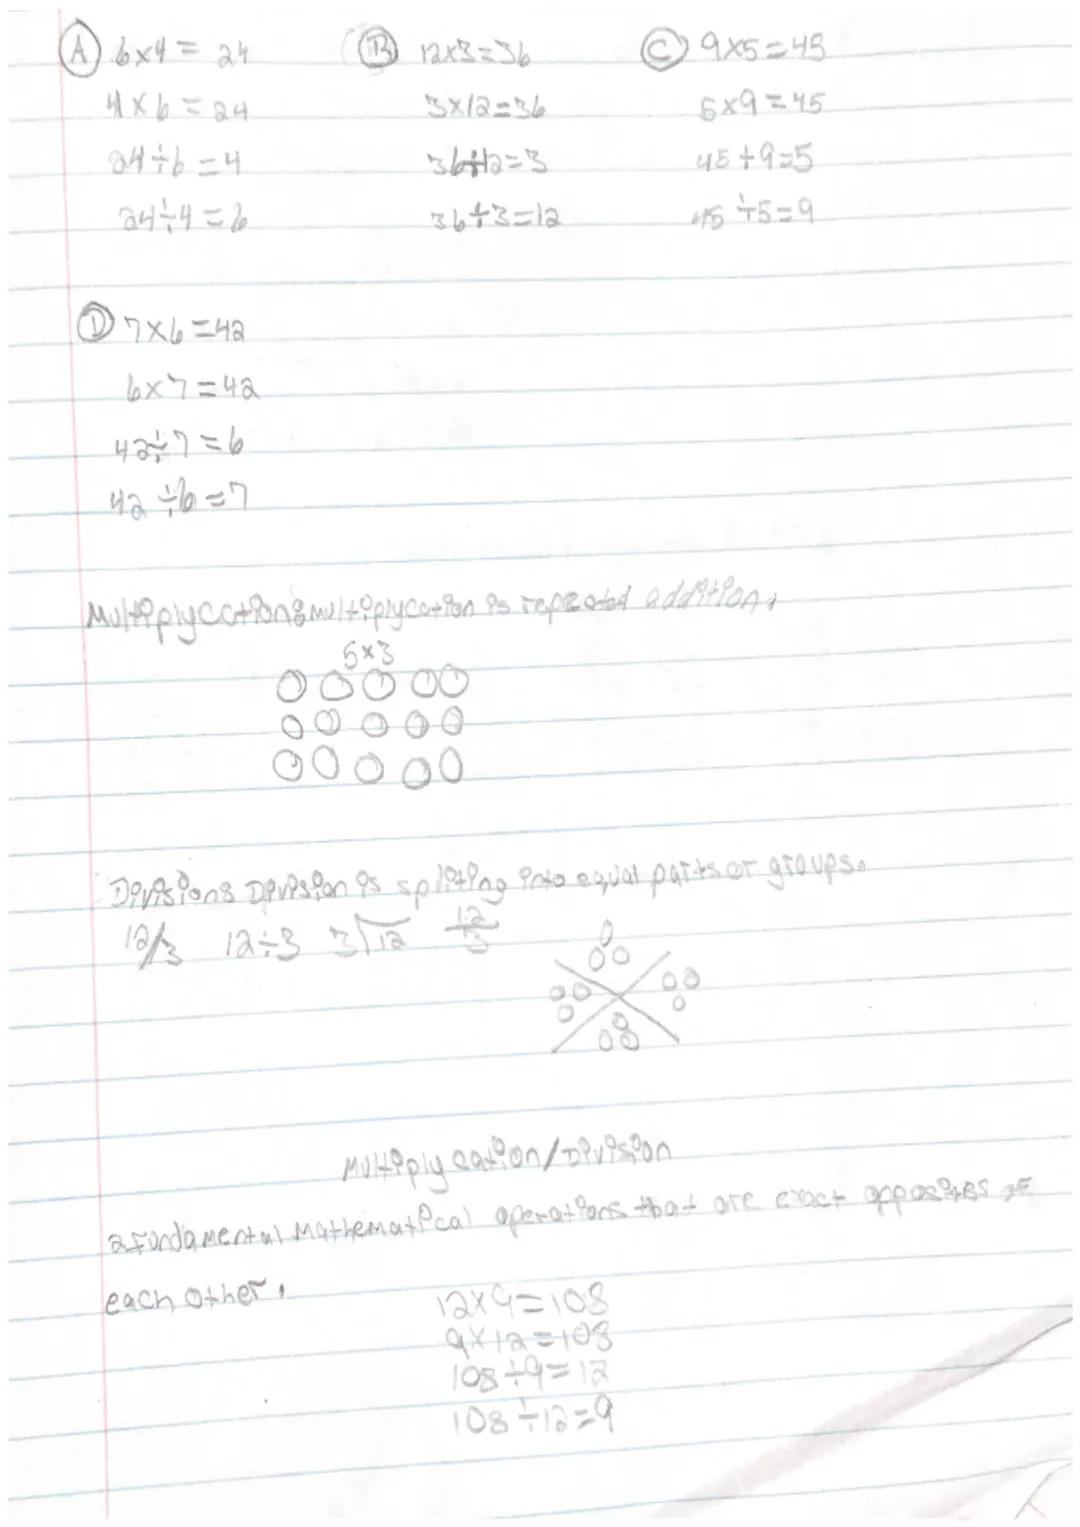 A 6x4 = 24
4x6 = 24
24÷6 = 4
24÷4 = 6
B 12x3=36
3x12=36
36÷12=3
36÷3=12
C 9x5=45
5x9=45
45÷9=5
45÷5=9
D 7x6=42
6x7=42
42÷7=6
42÷6=7
Multiplycation: multiplycation is repeated addition.
5x3
Division: Division is spliting into equal parts or groups.
12/3 12÷3 3)12 12/3
Multiplycation/Division
2 Fundamental Mathematical operations that are exact opposites of
each other.
12x9=108
9x12=108
108÷9=12
108÷12=9